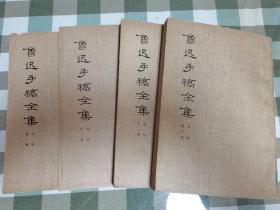 魯迅手稿全集
魯迅手稿全集
魯迅手稿全集
魯迅手稿全集